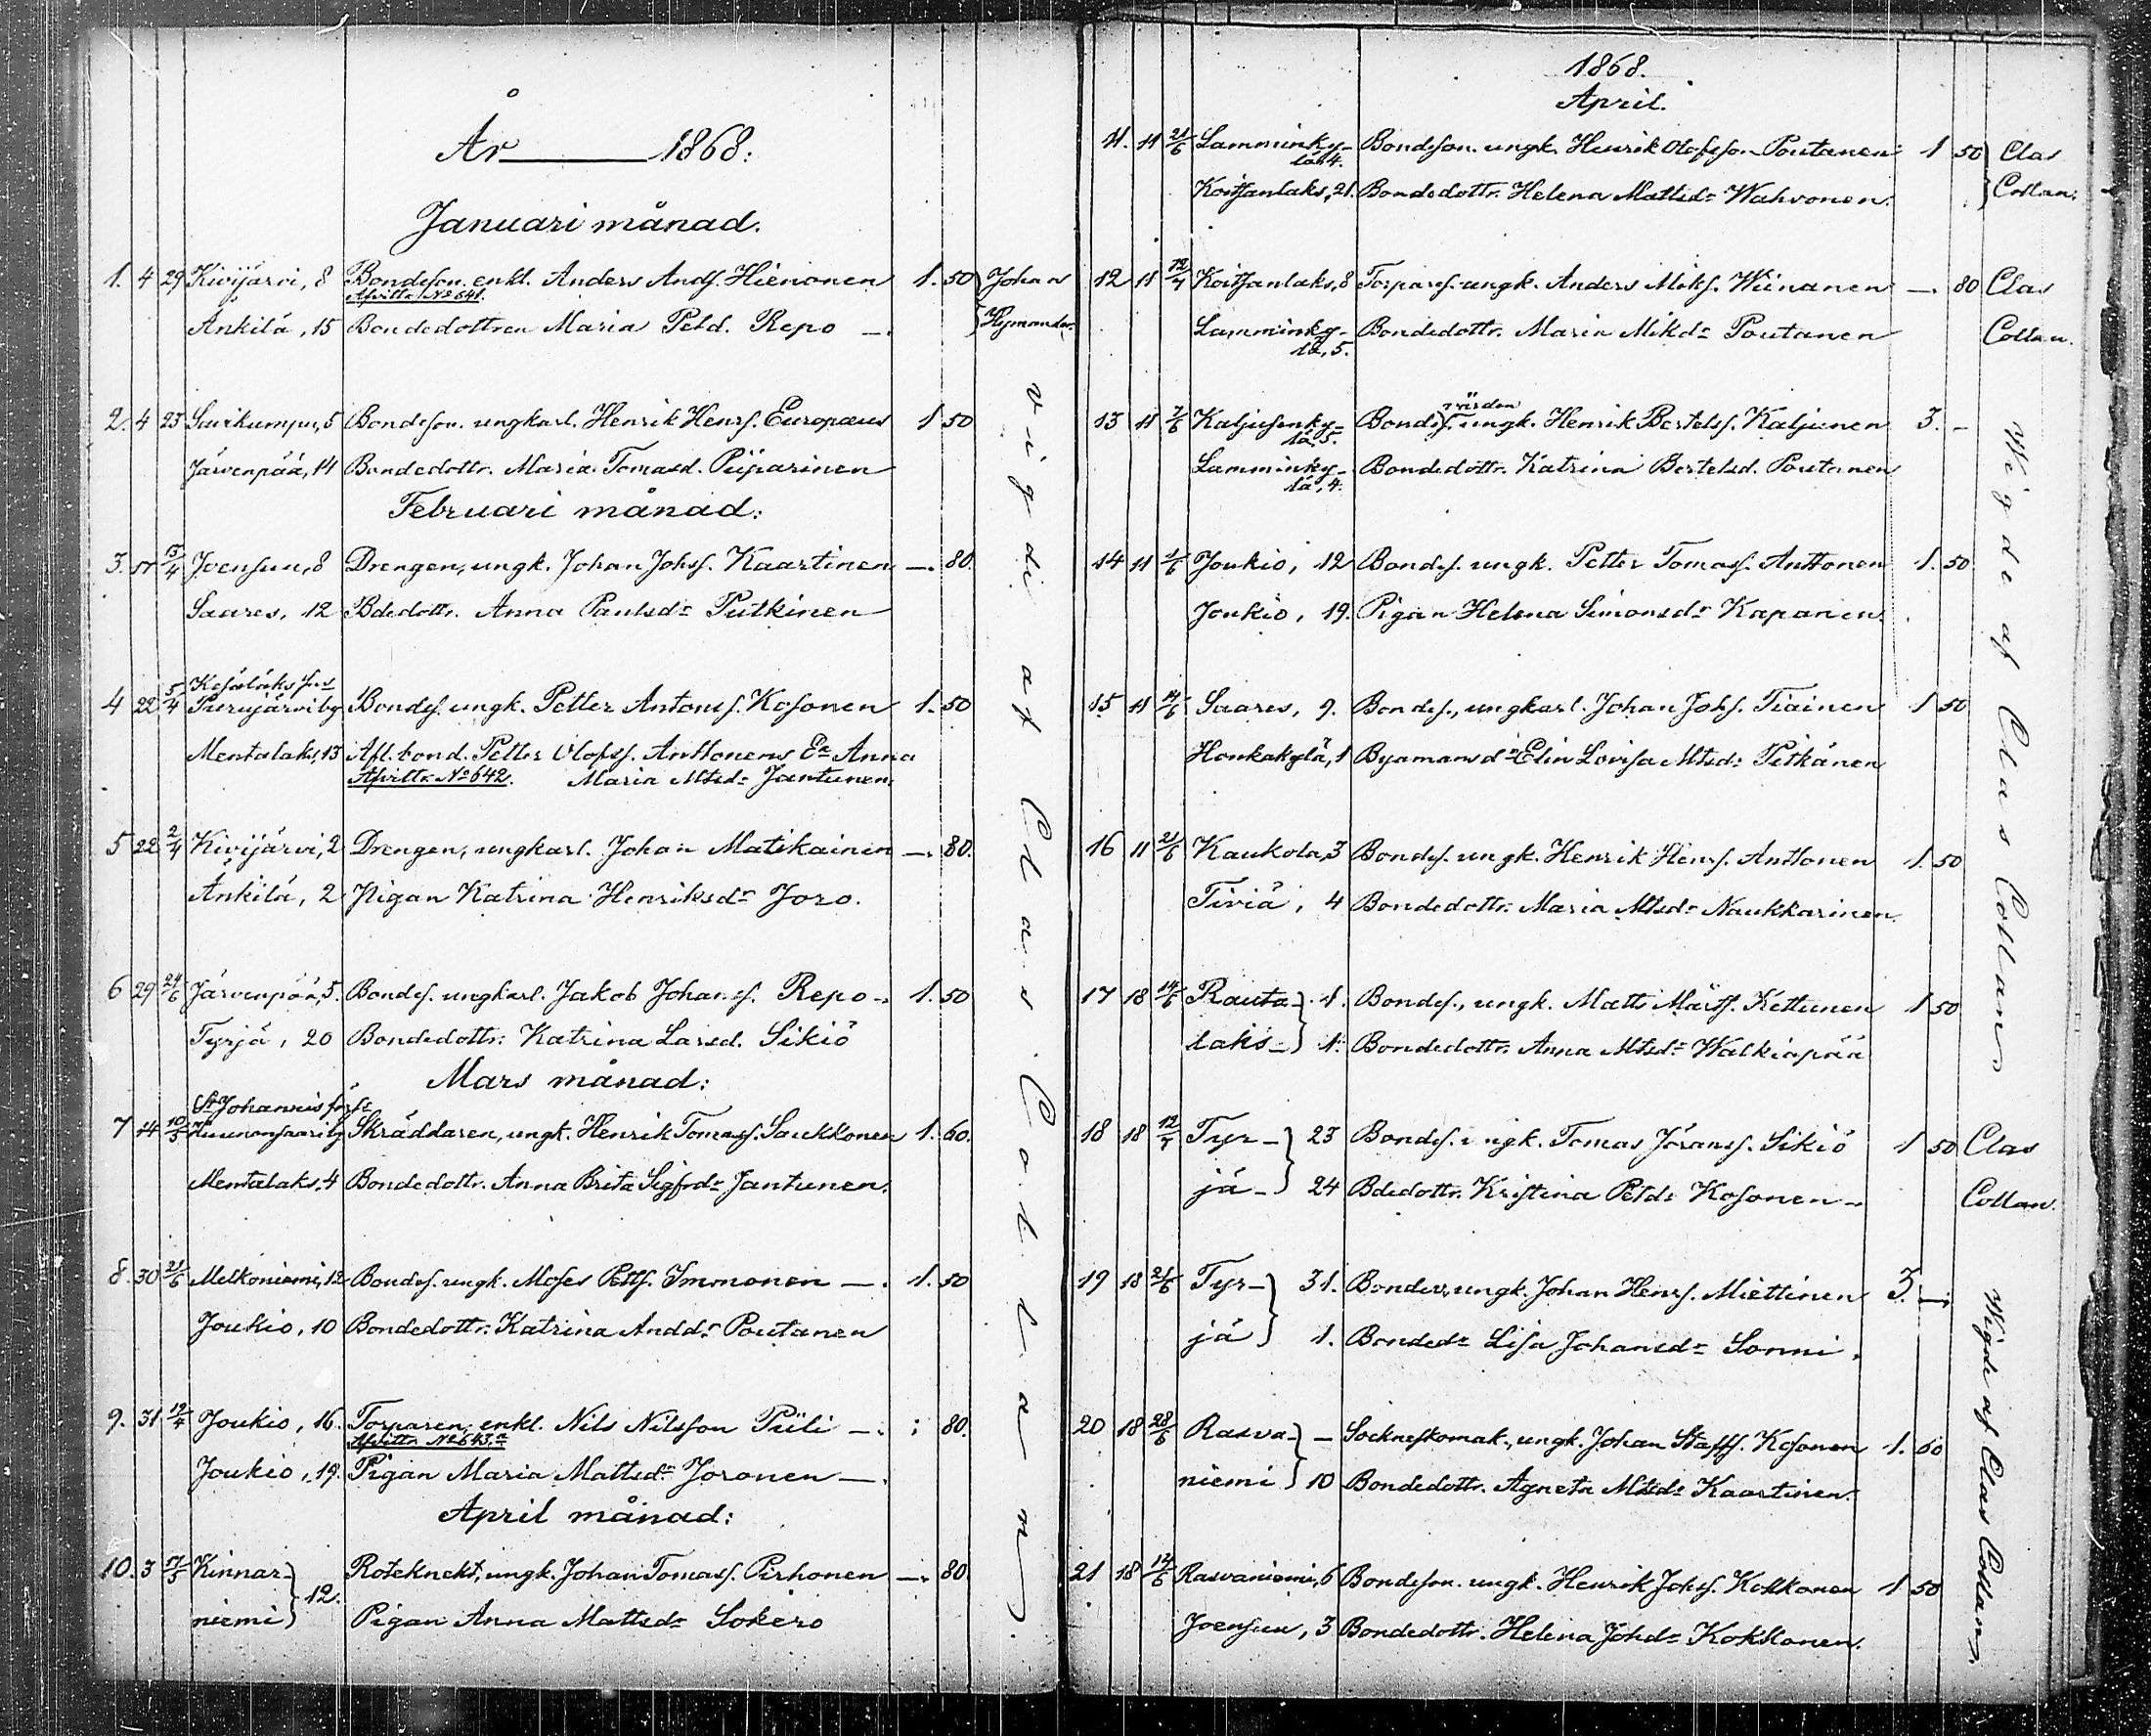 År 1868:
Januari månad.
1. 4 29 Kivijärvi, 8 Bondeson. enkl. Anders Andf. Hienonen 1. 50 Johan
Afvittr. No 641.
Änkilä, 15 Bondedottren Maria Petd. Repo —. Hymander.
2. 4 23 5 Bondeson. ungkarl. Henrik Henrf. Europæus 1 50
Järvenpää, 14 Bondedottr. Maria Tomasd. Piiparinen
Februari månad:
3. 5/4 Joensuu, 8 Drengen, ungk. Johan Johsf. Kaartinen —. 80.
Saares, 12 Bdedottr. Anna Paulsdr Putkinen
Kesälaks
4 22 5/4 Purujärvi by Bondef. ungk. Petter Antonsf. Kosonen 1. 50
Mentalaks, 13 Afl. bond. Petter Olofsf. Anttonens Ea Anna
Afvittr. No 642. Maria Mtsdr Jantunen.
5 22 2/4 Kivijärvi, 2 Drengen, ungkarl. Johan Matikainen —. 80.
Änkilä, 2 Pigan Katrina Henriksdr Joro.
6 29 24/6 Järvenpää, 5. Bondef. ungkarl. Jakob Johansf. Repo —. 1. 50
Tyrjä, 20 Bondedottr. Katrina Larsd. Sikiö
Mars månad:
St Johannis
7 14 10/5 Skräddaren, ungk. Henrik Tomasf. Saukkonen 1. 60.
Mentalaks, 4 Bondedottr. Anna Brita Sigfrdr Jantunen.
8. 30 21/6 Melkoniemi, 12 Bondef. ungk. Moses Pettf. Immonen —. 1. 50
Joukio, 10 Bondedottr. Katrina Anddr Poutanen
9. 31 19/4 Joukio, 16. Torparen, enkl. Nils Nilsson Piili —. : 80.
Afvittr. No 643.
Joukio, 19. Pigan Maria Mattsdr Joronen —.
April månad:
10. 3 17/5 Kinnar- Roteknekt, ungk. Johan Tomasf. Pirhonen —. 80.
niemi 12. Pigan Anna Mattsdr Sokero
vigdi af Clas Collan.
1868.
April.
11. 11 21/6 Lamminky- Bondeson. ungk. Henrik Olofsson Poutanen 1 50 Clas
lä, 4.
Koitsanlaks, 21. Bondedottr. Helena Mattsdr Wahvonen. Collan.
12 11 12/4 Koitsanlaks, 8 Torparef. ungk. Anders Mikf. Wiinanen —. 80 Clas
Lamminky- Bondedottr. Maria Mikdr Poutanen Collan.
lä, 5.
värden
13 11 7/6 Kaljusenky- Bondef. ungk. Henrik Bertelsf. Kaljunen 3. -
lä, 5.
Lamminky- Bondedottr. Katrina Bertelsd. Poutanen
lä, 4.
14 11 1/6 Joukio, 12 Bondef. ungk. Petter Tomasf. Anttonen 1. 50
Joukio, 19. Pigan Helena Simonsdr Kapanen.
15 11 14/6 Saares, 9. Bondef., ungkarl. Johan Johsf. Tiainen 1 50
Honkakylä, 1 Byamansdr Elin Lovisa Mtsdr Pitkänen
16 11 21/6 Kaukola, 3 Bondef. ungk. Henrik Henrf. Anttonen 1. 50
Tiviä, 4 Bondedottr. Maria Mtsdr Naukkarinen
17 18 14/6 Rauta- 1. Bondef., ungk. Matts Mårtf. Kettunen 1 50
laks- 1. Bondedottr. Anna Mtsdr Walkiapää
18 18 12/4 Tyr- 23 Bondef. ungk. Tomas Göransf. Sikiö 1 50 Clas
jä- 24 Bdedottr. Kristina Petdr Kosonen — Collan.
19 18 21/6 Tyr- 31. Bonden, ungk. Johan Henrf. Miettinen 3. —
jä 1. Bondedr Lisa Johansdr Sonni.
20 18 28/6 Rasva- — Socknskomak., ungk. Johan Staff. Kosonen 1. 60
niemi 10 Bondedottr. Agneta Mtsdr Kaartinen.
21 18 14/6 Rasvaniemi, 6 Bondeson. ungk. Henrik Johsf. Kokkonen 1 50
Joensuu, 3 Bondedottr. Helena Johdr Kokkonen.
Wigde af Clas Collan
Wigde af Clas Collan.